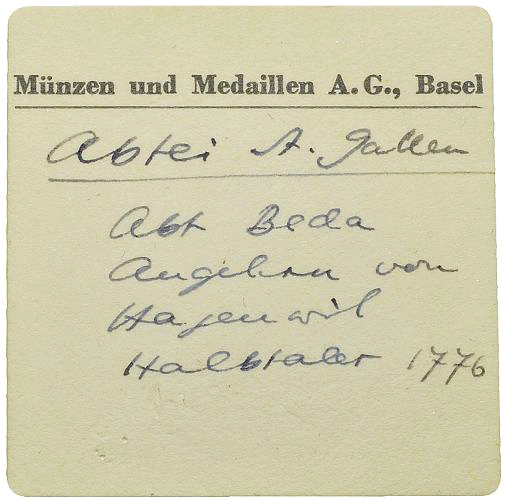 Münzen und Medaillen A.G., Basel
Abtei St. Gallen
Abt Beda
Angehrn von
Hagenwil
Halbtaler 1776